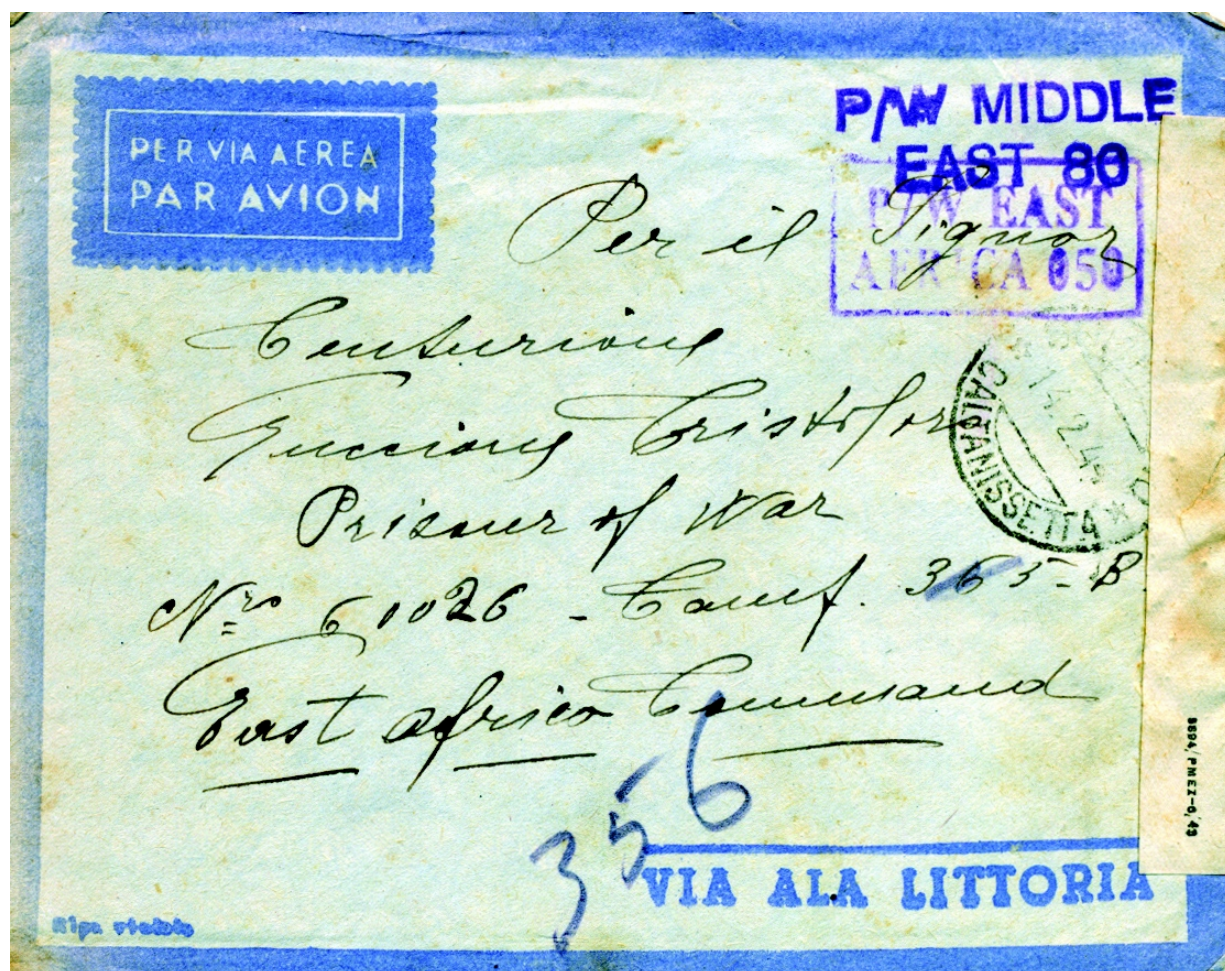 PER VIA AEREA
PAR AVION
P/W MIDDLE
EAST 80
P/W EAST
AFRICA 050
Per il Signor
Centurione
Guccione Cristofor
Prisoner of War
Nro 61026 - Camp. 365-B.
East Africa Command
CALTANISSETTA
14.2.4
356
VIA ALA LITTORIA